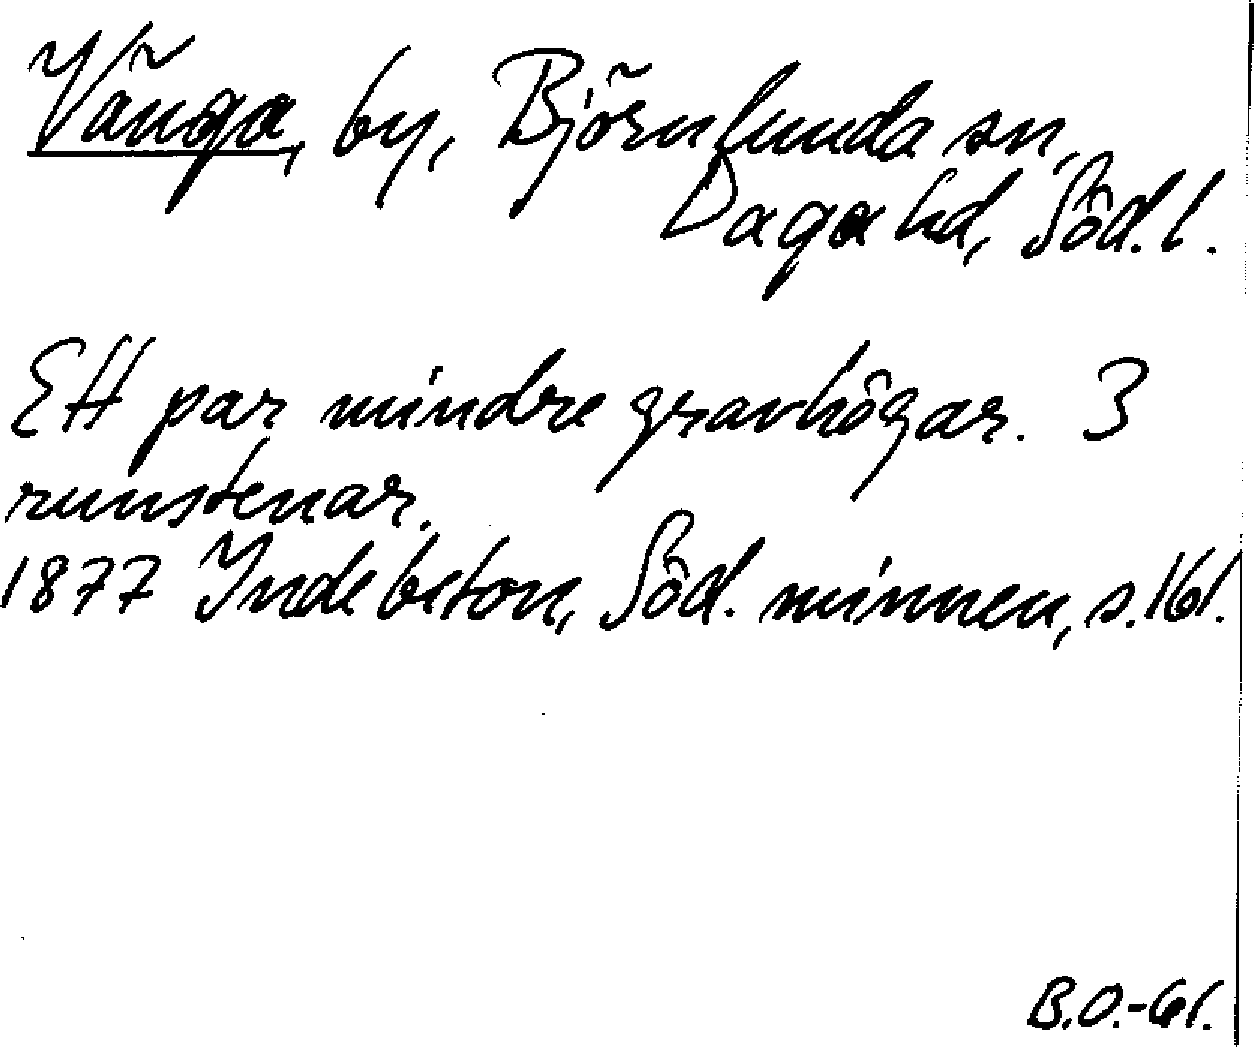 Vänga, by, Björnlunda sn,
Daga hd, Söd. l.
Ett par mindre gravhögar. 3
runstenar.
1877 Indebeton, Söd. minnen, s. 161.
B.O.-61.